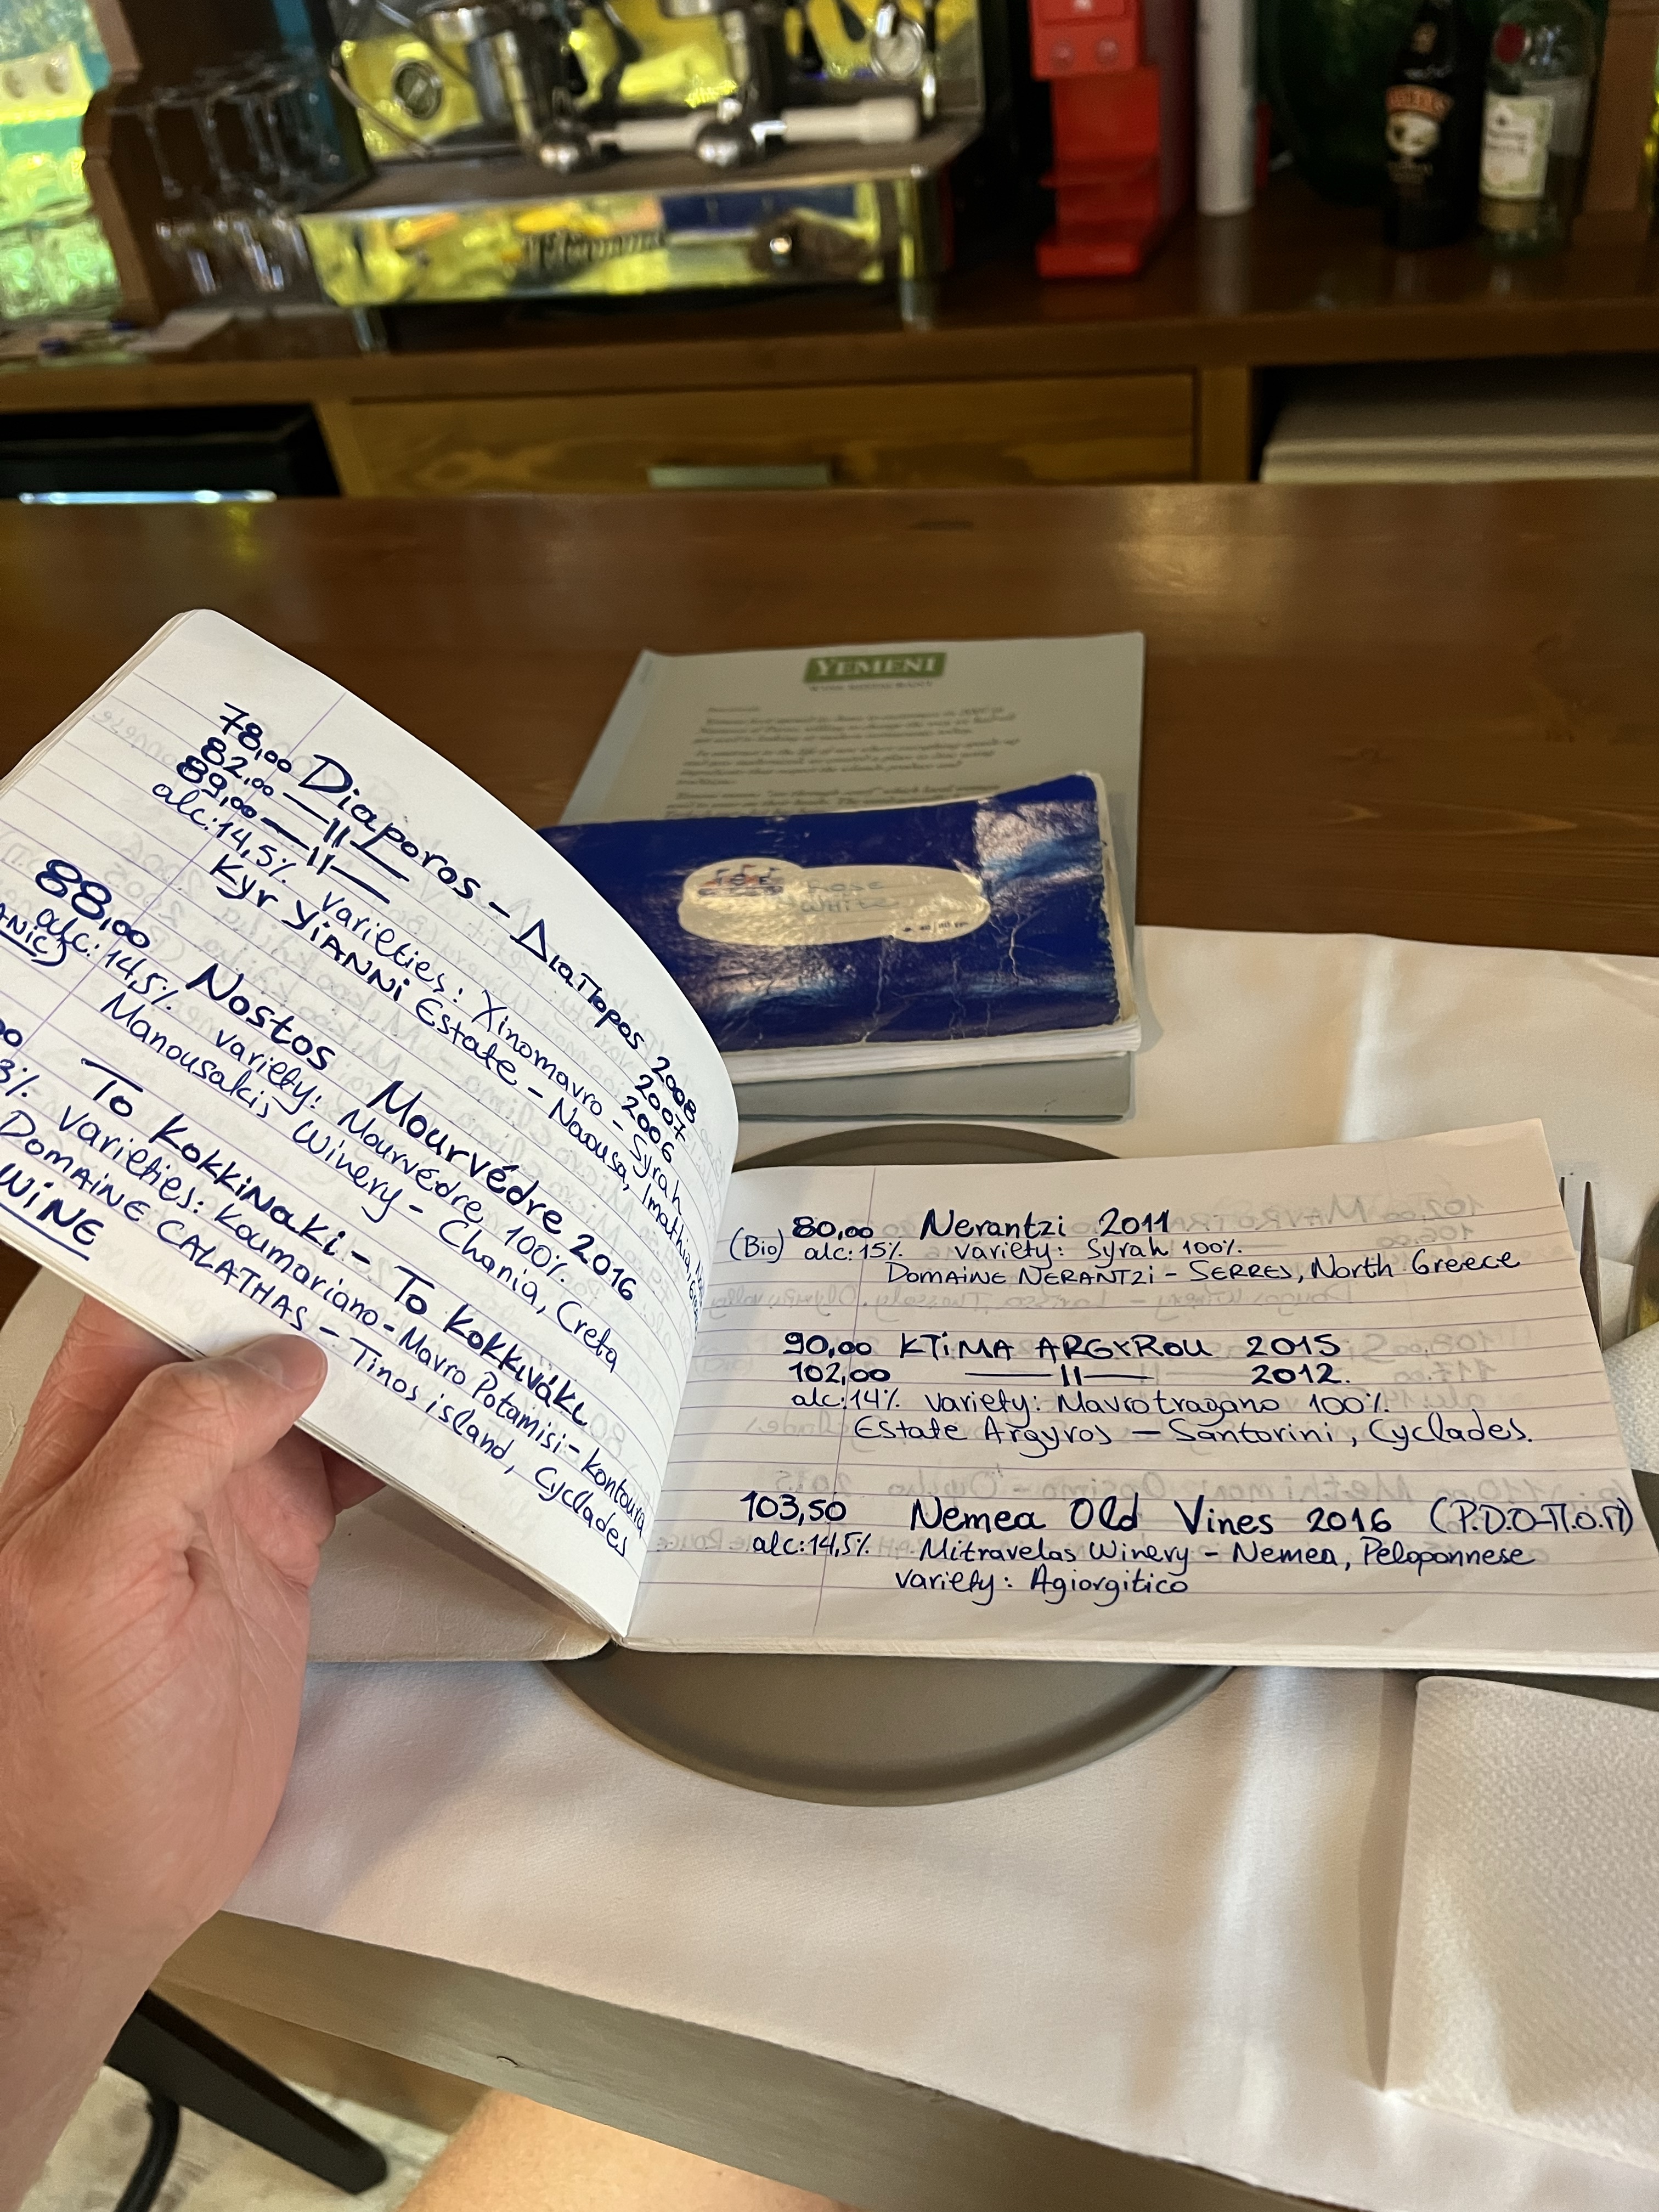 78,00 Diaporos - Διαπορος 2008
82,00 —〃— 2007
89,00 —〃— 2006
alc:14,5% varieties: Xinomavro - Syrah
Kyr YiANNi Estate - Naousa, Imathia,
88,00 Nostos Mourvédre 2016
alc:14,5% variety: Mourvédre 100%
Manousakis Winery - Chania, Creta
To KokkiNaki - Το Κοκκινάκι
3% varieties: Koumariano - Mavro Potamisi - Kontoura
DOMAiNE CALATHAS - Tinos island, Cyclades
WiNE
80,00 Nerantzi 2011
(Bio) alc:15% variety: Syrah 100%.
DOMAiNE NERANTZi - SERRES, North Greece
90,00 KTiMA ARGYROU 2015
102,00 —〃— 2012.
alc:14% variety: Mavrotragano 100%.
Estate Argyros - Santorini, Cyclades.
103,50 Nemea Old Vines 2016 (P.D.O-Π.Ο.Π)
alc:14,5% Mitravelas Winery - Nemea, Peloponnese
variety: Agiorgitico
YEMENI
Rose
White
BAILEYS